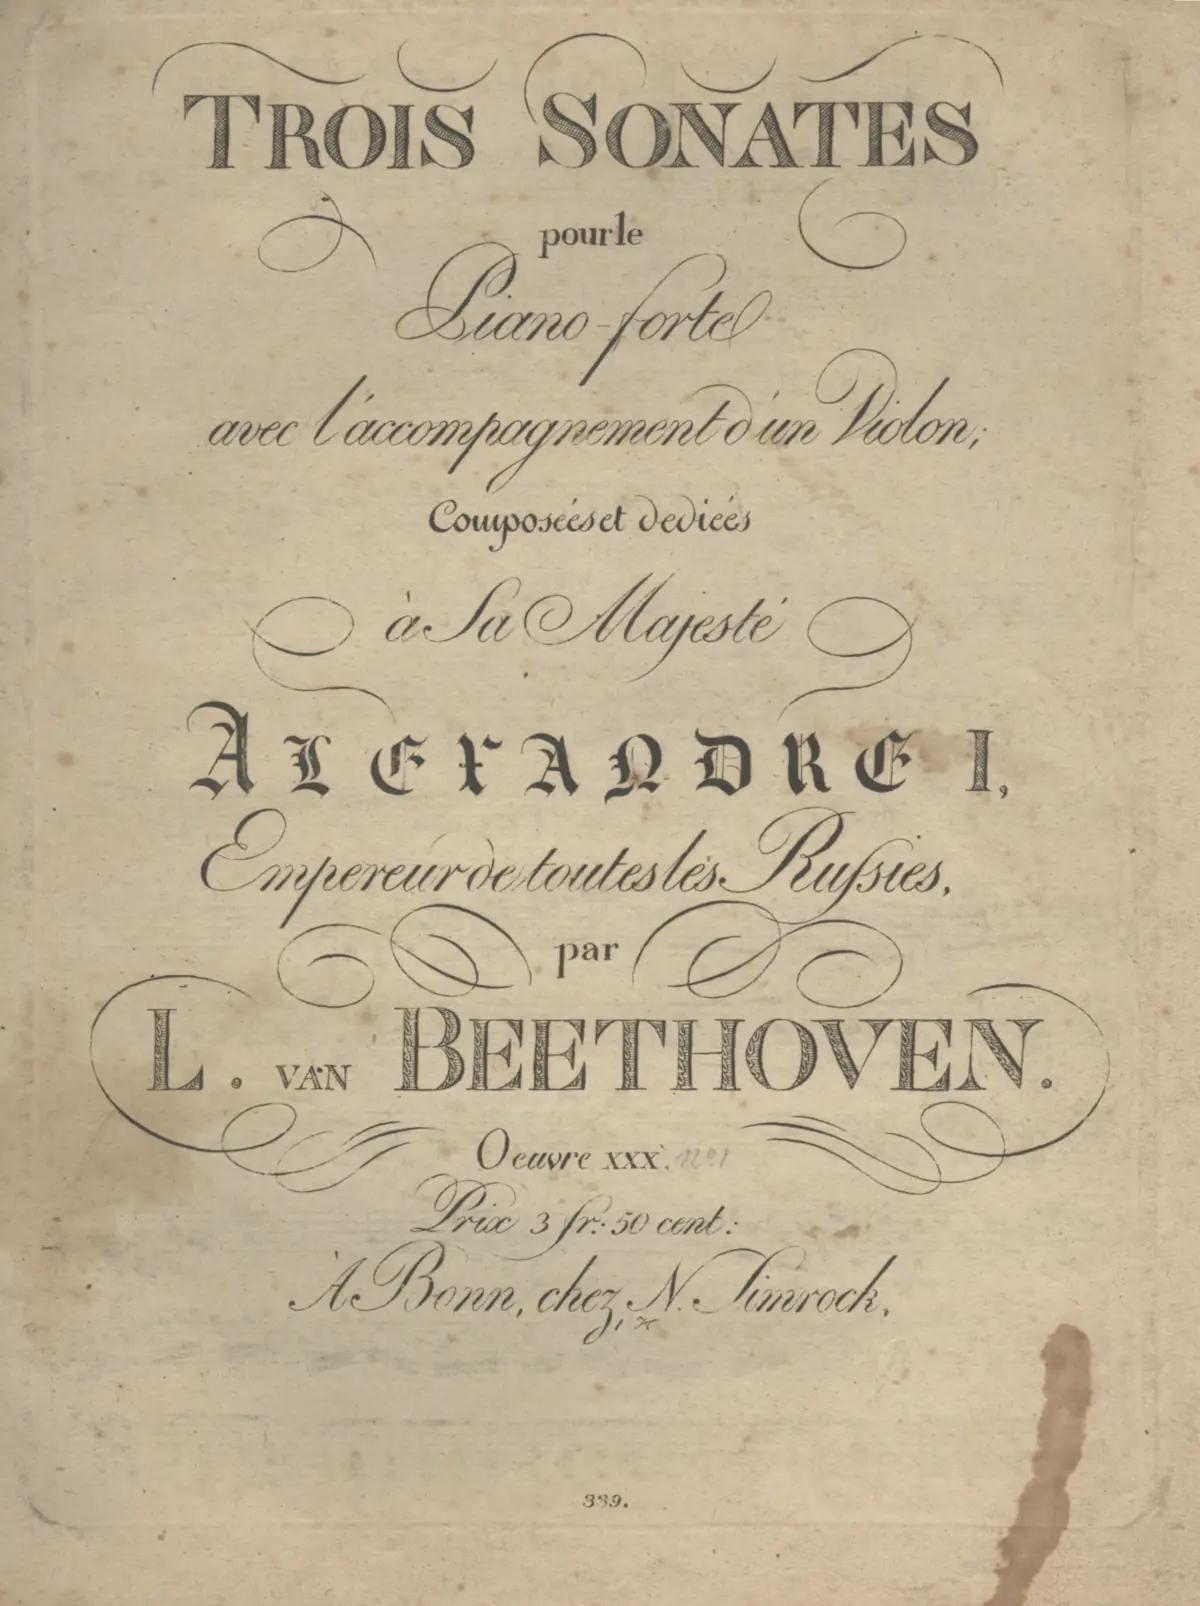 TROIS SONATES
pour le
Piano-forte
avec l'accompagnement d'un Violon;
Composées et dediées
à Sa Majesté
ALEXANDRE I,
Empereur de toutes les Russies,
par
L. VAN BEETHOVEN.
Oeuvre XXX. No 1
Prix 3 fr: 50 cent:
A Bonn, chez N. Simrock.
339.